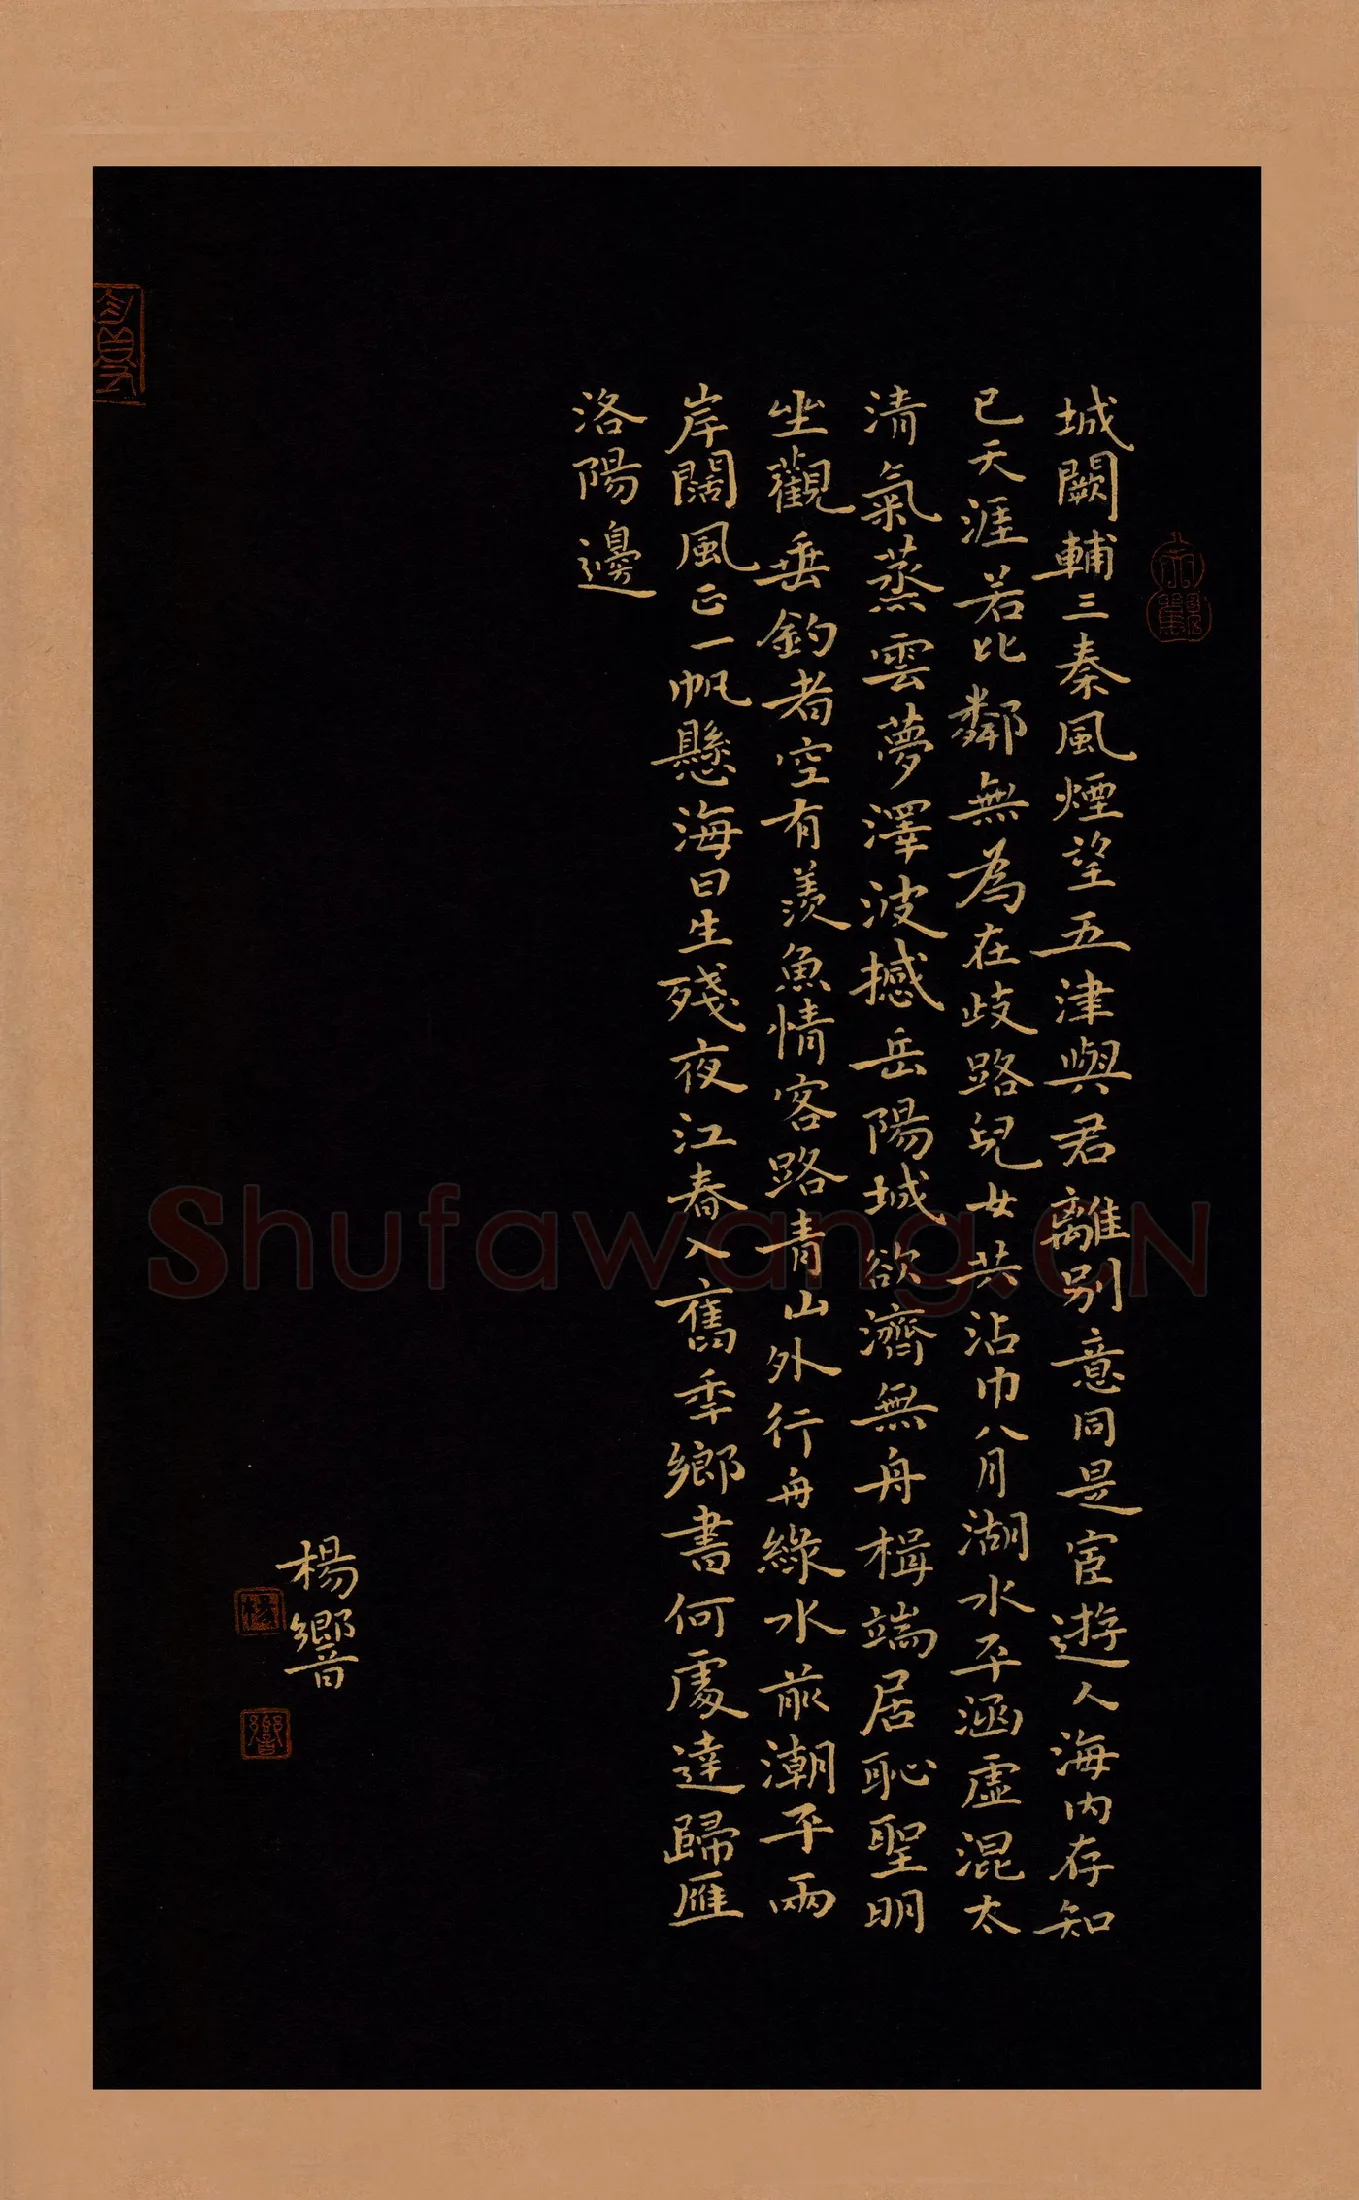 城闕輔三秦風煙望五津與君離別意同是宦遊人海内存知
已天涯若比鄰無為在歧路兒女共沾巾八月湖水平涵虛混太
清氣蒸雲夢澤波撼岳陽城欲濟無舟楫端居恥聖明
坐觀垂釣者空有羨魚情客路青山外行舟綠水前潮平兩
岸闊風正一帆懸海日生殘夜江春入舊季鄉書何處達歸雁
洛陽邊
楊響
Shufawang.CN